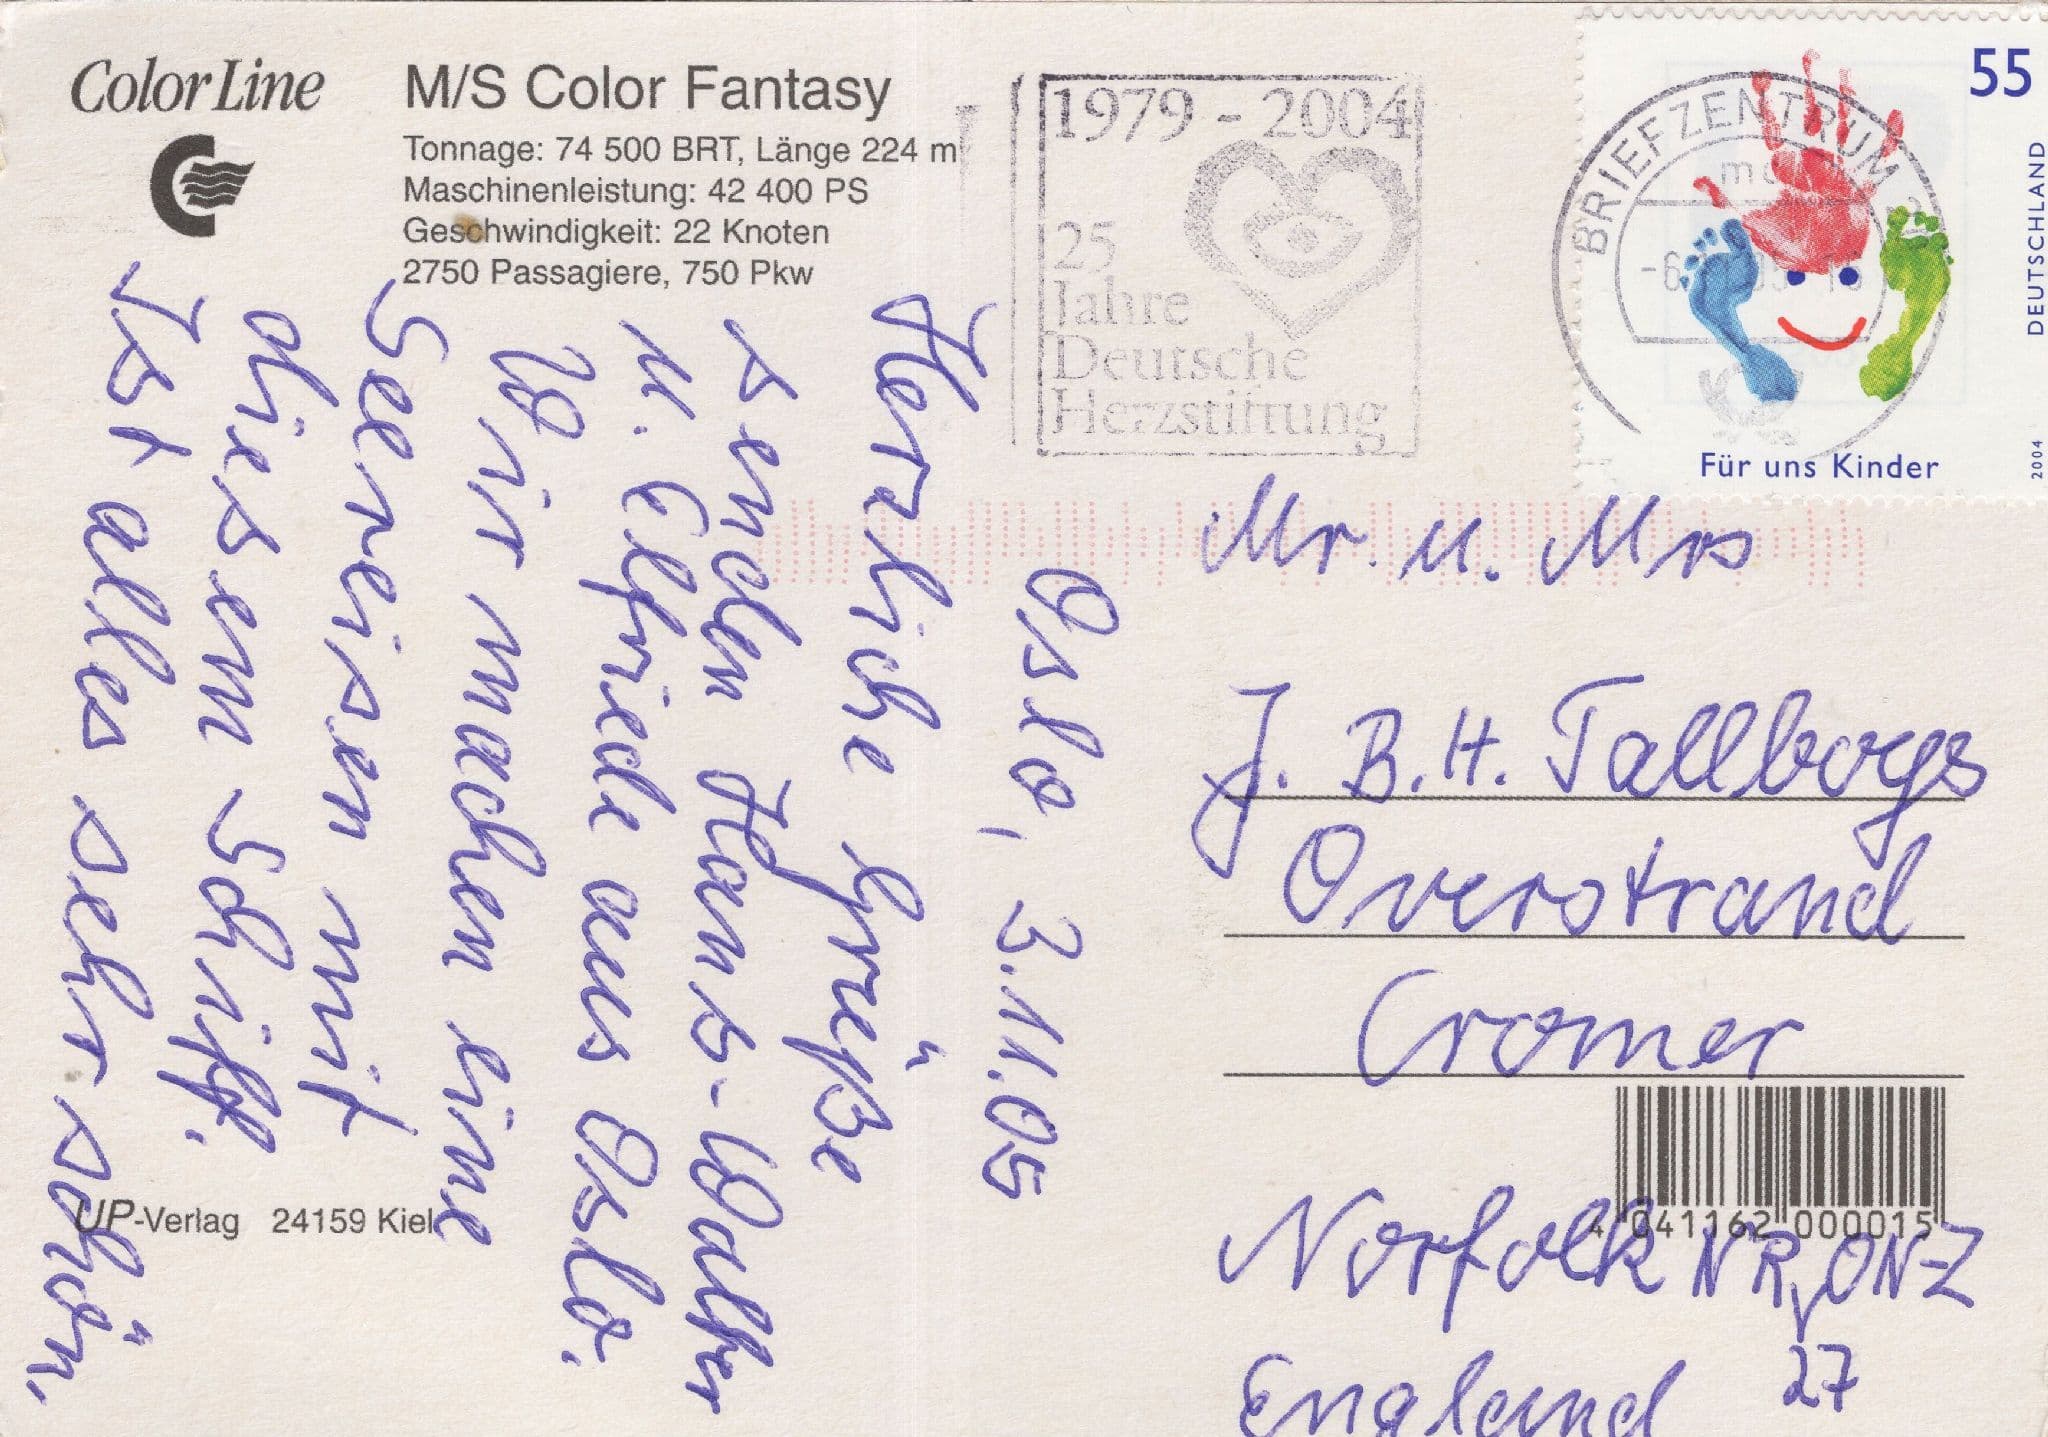 Color Line
M/S Color Fantasy
Tonnage: 74 500 BRT, Länge 224 m
Maschinenleistung: 42 400 PS
Geschwindigkeit: 22 Knoten
2750 Passagiere, 750 Pkw
1979 - 2004
25
Jahre
Deutsche
Herzstiftung
BRIEFZENTRUM
55
DEUTSCHLAND
2004
Für uns Kinder
Oslo, 3.11.05
Herzliche Grüße
senden Hans-Walter
u. Elfriede aus Oslo.
Wir machen eine
Seereisen mit
diesem Schiff.
Ist alles sehr schön.
Mr. u. Mrs
J. B. H. Tallboys
Overstrand
Cromer
Norfolk NR, ON-Z
27
England
4 041162 000015
UP-Verlag 24159 Kiel